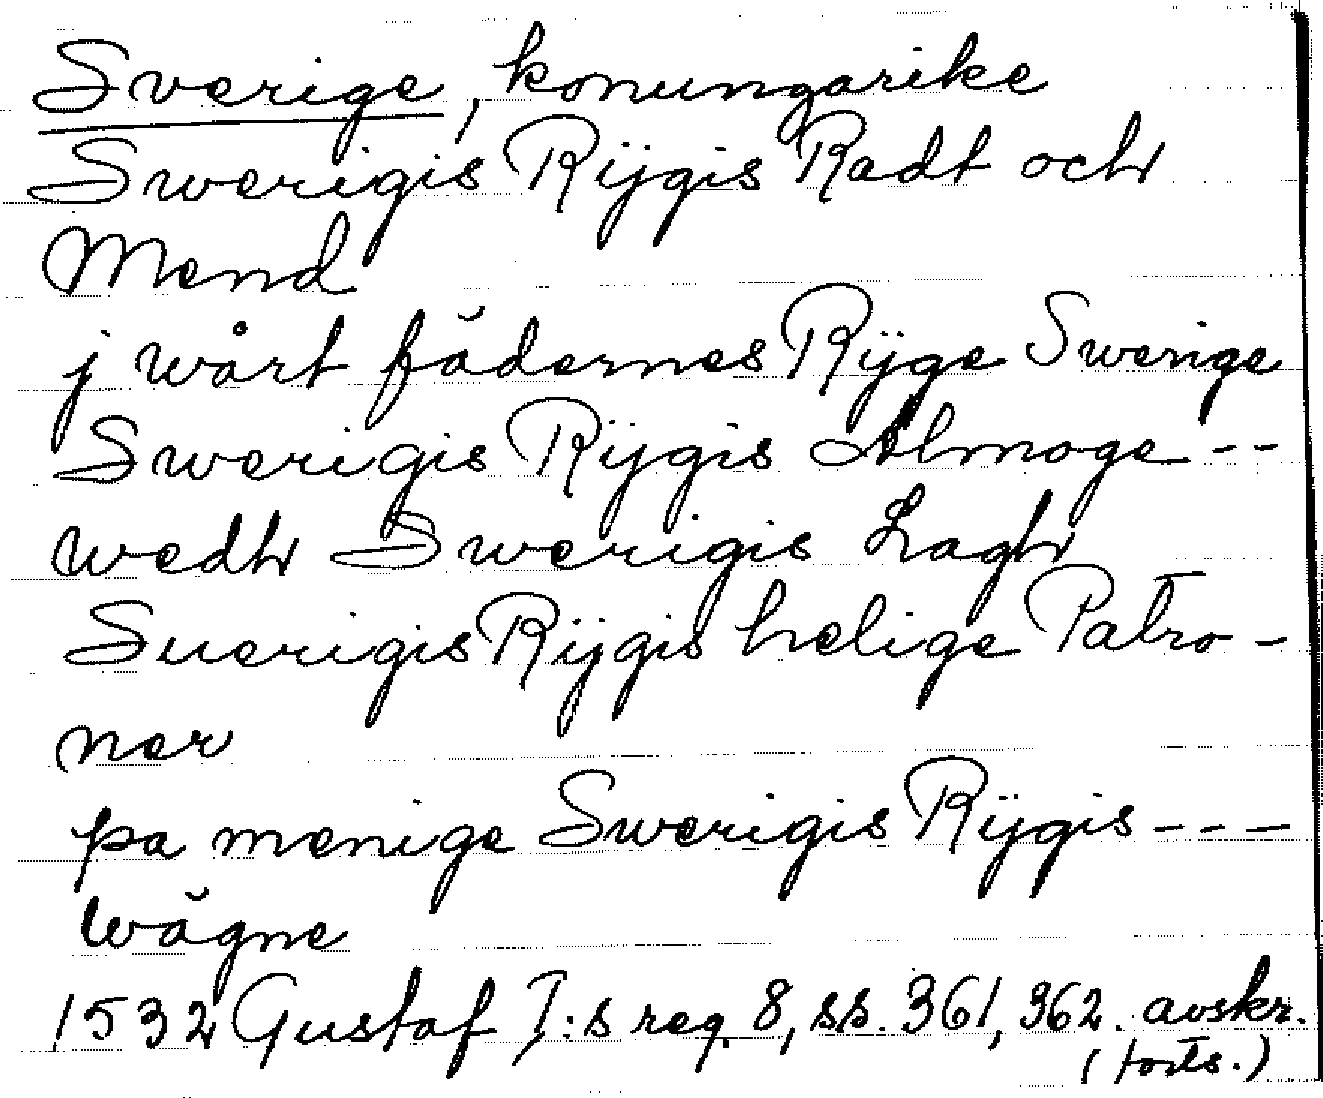 Sverige, konungarike
Swerigis Rÿgis Radt och
Mend
j wårt fädernes Rÿge Swerige
Swerigis Rÿgis Almoge --
wedh Swerigis Lagh
Suerigis Rÿgis helige Patro-
ner
pa menige Swerigis Rÿgis ---
wägne
1532 Gustaf I:s reg. 8, ss. 361, 362. avskr.
(forts.)